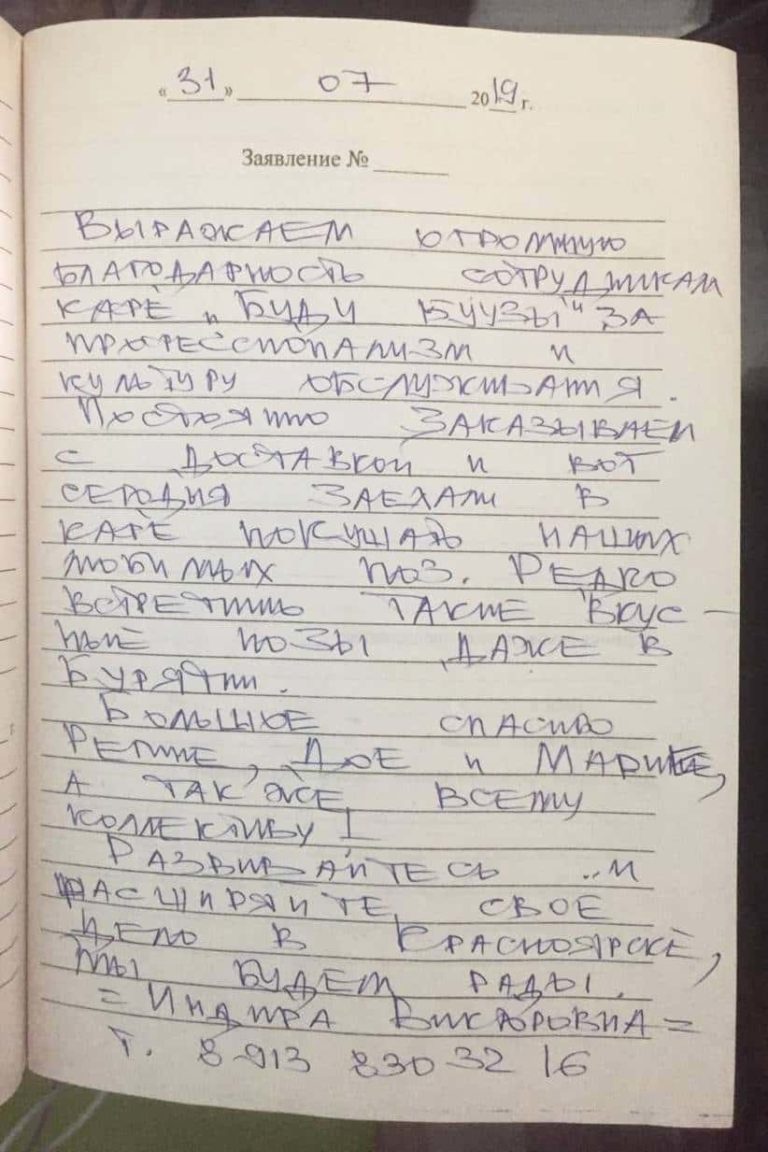 « 31 » 07 2019 г.
Заявление №
Выражаем огромную
благодарность сотрудникам
кафе „Буду буузы" за
профессионализм и
культуру обслуживания.
Постоянно заказываем
с доставкой и вот
сегодня заехали в
кафе покушать наших
любимых поз. Редко
встретишь такие вкус-
ные позы даже в
Бурятии.
Большое спасибо
и Марине,
а так же всему
коллективу!
Развивайтесь и
расширяйте свое
дело в Красноярске,
мы будем рады.
= Индира Викторовна =
т. 8-913 830 32 16